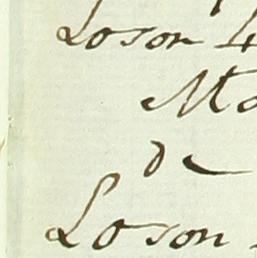 Loson 4
Ma
de
Loson